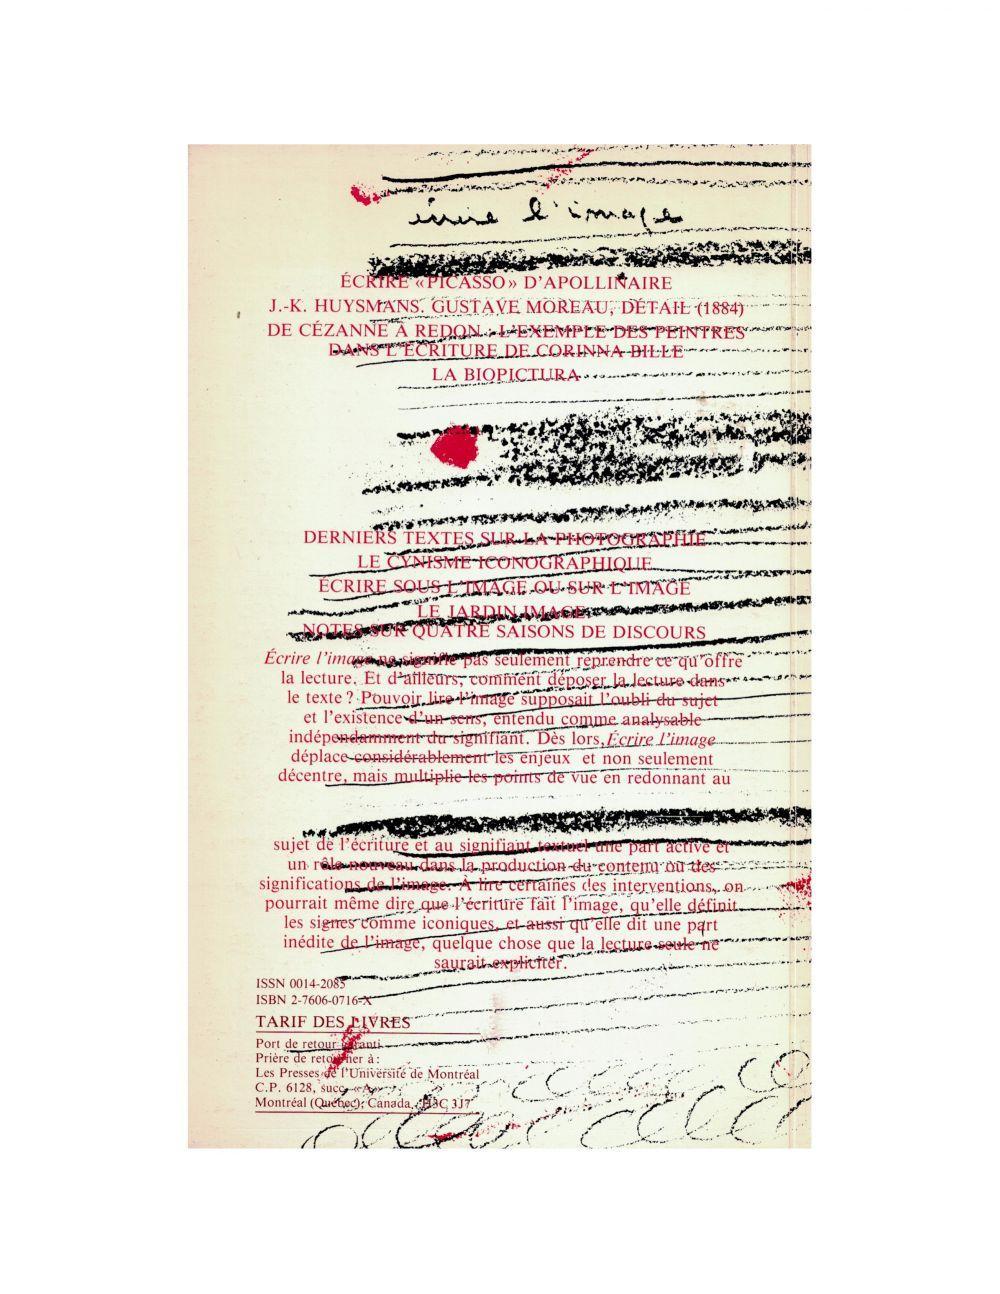 écrire l'image
ÉCRIRE «PICASSO» D'APOLLINAIRE
J.-K. HUYSMANS. GUSTAVE MOREAU, DÉTAIL (1884)
DE CÉZANNE À REDON : L'EXEMPLE DES PEINTRES
DANS L'ÉCRITURE DE CORINNA BILLE
LA BIOPICTURA
DERNIERS TEXTES SUR LA PHOTOGRAPHIE
LE CYNISME ICONOGRAPHIQUE
ÉCRIRE SOUS L'IMAGE OU SUR L'IMAGE
LE JARDIN IMAGE
NOTES SUR QUATRE SAISONS DE DISCOURS
Écrire l'image ne signifie pas seulement reprendre ce qu'offre
la lecture. Et d'ailleurs, comment déposer la lecture dans
le texte? Pouvoir lire l'image supposait l'oubli du sujet
et l'existence d'un sens, entendu comme analysable
indépendamment du signifiant. Dès lors, Écrire l'image
déplace considérablement les enjeux et non seulement
décentre, mais multiplie les points de vue en redonnant au
sujet de l'écriture et au signifiant textuel une part active et
un rôle nouveau dans la production du contenu ou des
significations de l'image. À lire certaines des interventions, on
pourrait même dire que l'écriture fait l'image, qu'elle définit
les signes comme iconiques, et aussi qu'elle dit une part
inédite de l'image, quelque chose que la lecture seule ne
saurait expliciter.
ISSN 0014-2085
ISBN 2-7606-0716-X
TARIF DES LIVRES
Port de retour garanti
Prière de retourner à :
Les Presses de l'Université de Montréal
C.P. 6128, succ. «A»
Montréal (Québec), Canada, H3C 3J7